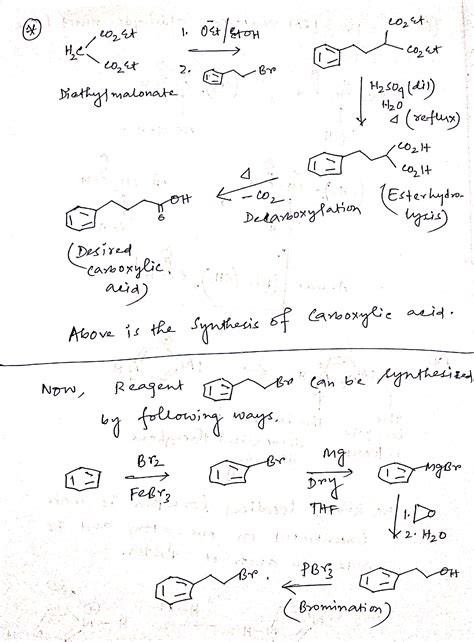 *
CO2Et
H2C
CO2Et
Diethylmalonate
1. ŌEt/EtOH
2. Br
CO2Et
CO2Et
H2SO4 (dil)
H2O
Δ (reflux)
CO2H
CO2H
(Ester hydro-
lysis)
Δ
-CO2
Decarboxylation
OH
O
(Desired
carboxylic
acid)
Above is the synthesis of carboxylic acid.
NOW, Reagent Br can be synthesized
by following ways.
Br2
FeBr3
Br
Mg
Dry
THF
MgBr
1.
2. H2O
OH
PBr3
(Bromination)
Br.